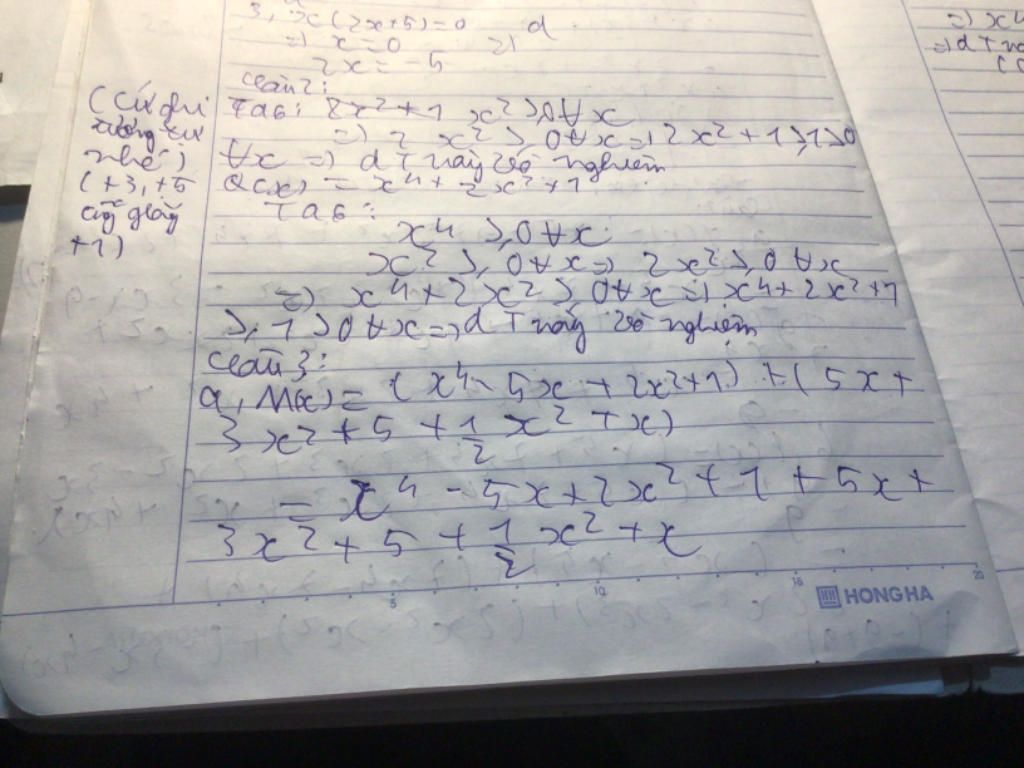 3, x(2x+5)=0
=) x=0
2x=-5
Câu 2:
Ta có: 2x²+1 x²≥0∀x
=) 2x²≥0∀x=)2x²+1≥1>0
∀x =) đT này vô nghiệm
Q(x) = x⁴+2x²+1
Ta có:
x⁴≥0∀x
x²≥0∀x=) 2x²≥0∀x
=) x⁴+2x²≥0∀x=)x⁴+2x²+1
≥1>0∀x=)đT này vô nghiệm
Câu 3:
a, M(x)=(x⁴-5x+2x²+1)+(5x+
3x²+5+1/2x²+x)
=x⁴-5x+2x²+1+5x+
3x²+5+1/2x²+x
(cứ ghi
tương tự
nhé)
(+3,+5
cũng giống
+1)
=) x⁴
5
10
15
20
HONG HA